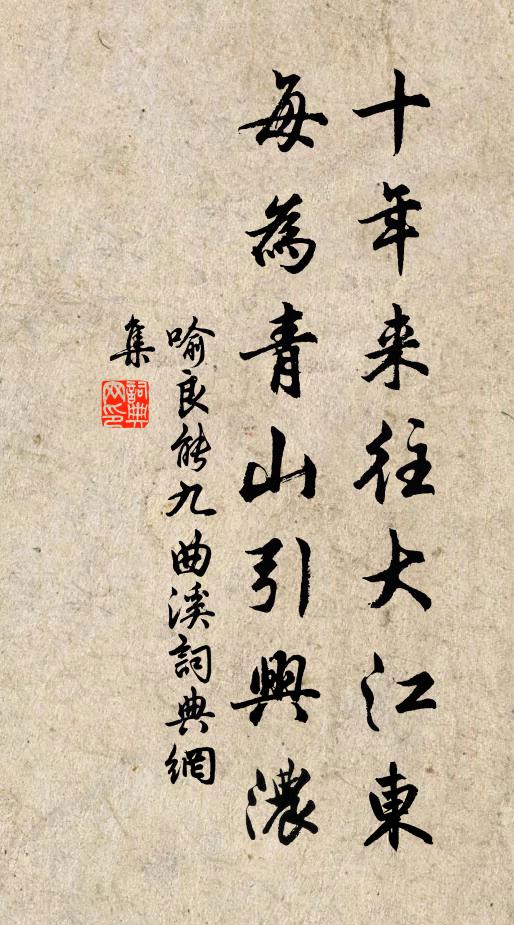 十年来往大江東
每為青山引興濃
喻良能九曲溪詞典網
集
詞典網印